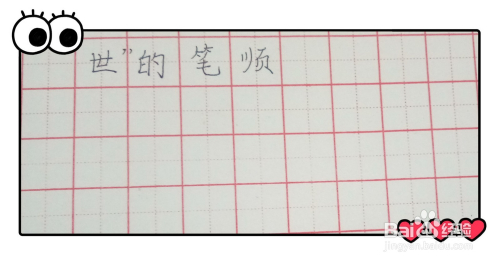 世”的笔顺
Baidu经验
jingyan.baidu.com